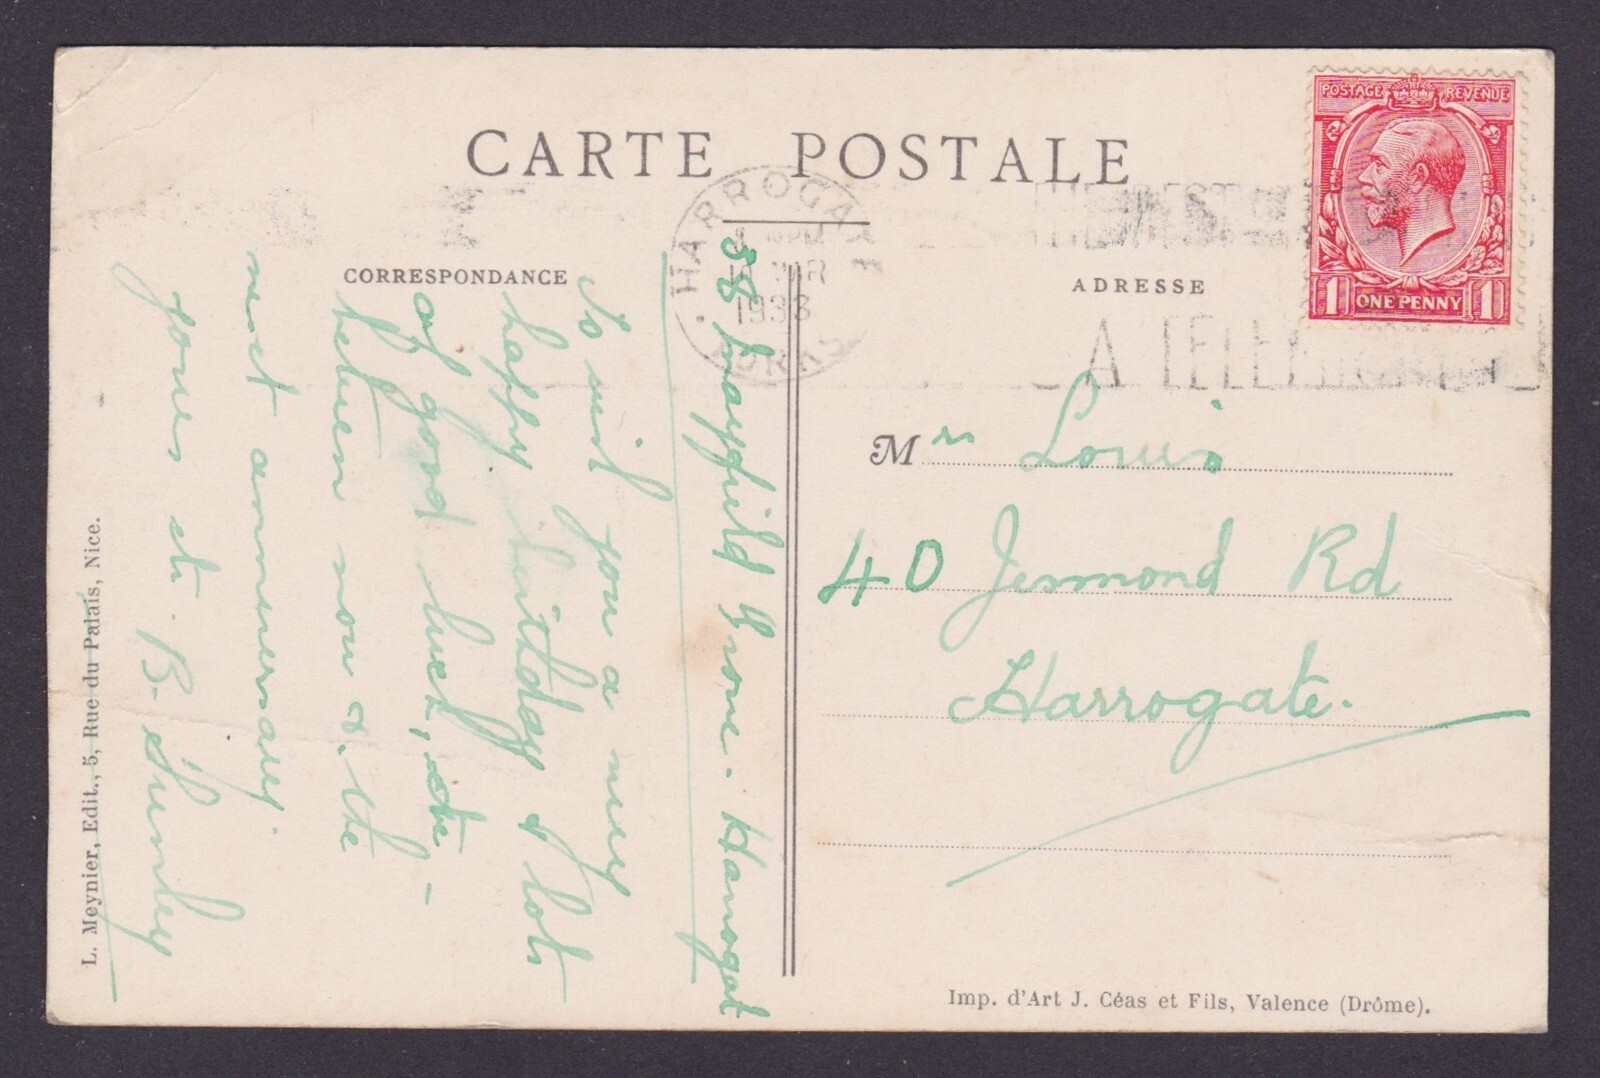 CARTE POSTALE
POSTAGE REVENUE
1 ONE PENNY 1
HARROGATE
PM
MAR
1933
YORKS
A TELEPHONE
CORRESPONDANCE
38 Mayfield Grove - Harrogate
To wish you a very
happy birthday & lots
of good luck, etc -
between now & the
next anniversary.
Yours etc. B. Sumley
ADRESSE
Mrs Louis
40 Jesmond Rd
Harrogate.
L. Meynier, Edit., 5, Rue du Palais, Nice.
Imp. d'Art J. Céas et Fils, Valence (Drôme).